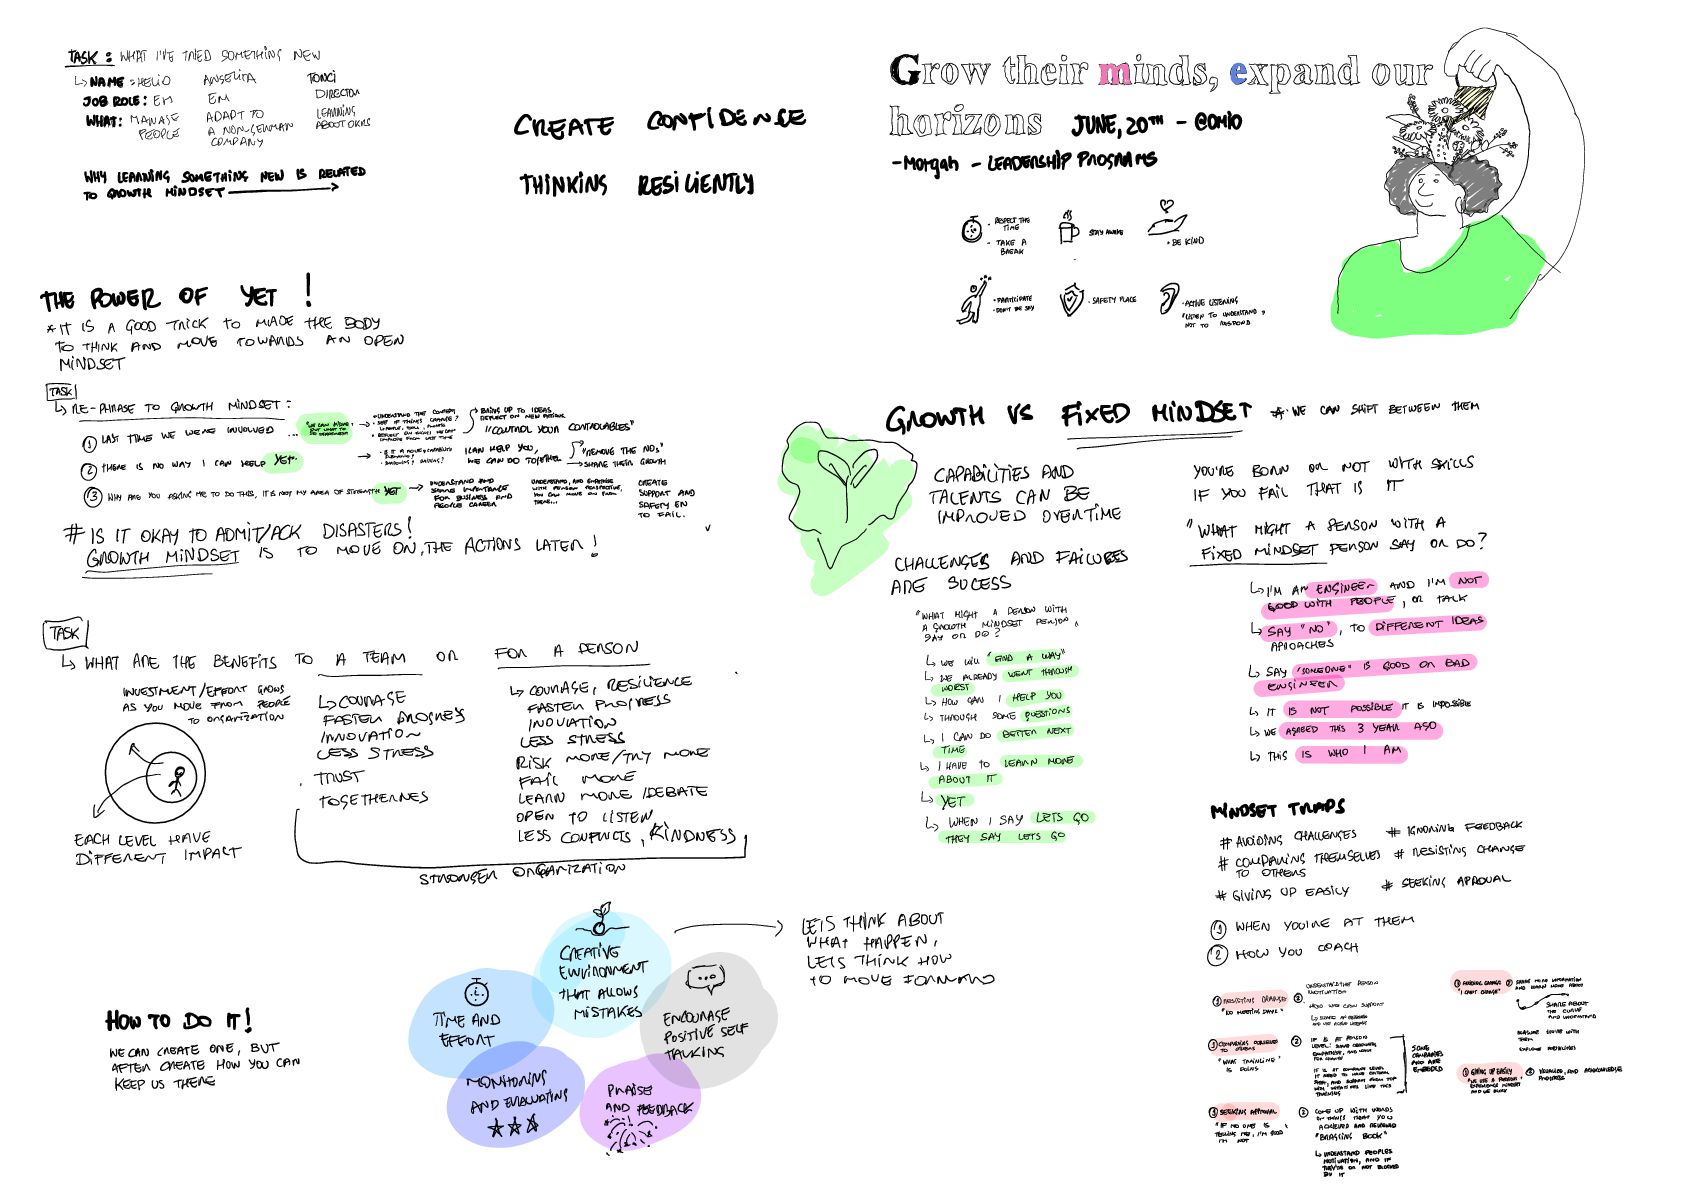 TASK: WHAT I'VE TRIED SOMETHING NEW
NAME: HELIO ANGELITA TONCI
JOB ROLE: EM EM DIRECTOR
WHAT: MANAGE PEOPLE
ADAPT TO
A NON-GERMAN
COMPANY
LEARNING
ABOUT OKRS
WHY LEARNING SOMETHING NEW IS RELATED
TO GROWTH MINDSET
CREATE CONFIDENCE
THINKING RESILIENTLY
Grow their minds, expand our
horizons JUNE, 20TH - @OMIO
-Morgan - LEADERSHIP PROGRAMS
- RESPECT THE
TIME
- TAKE A
BREAK
STAY AWAKE
• BE KIND
- PARTICIPATE
- DON'T BE SHY
- SAFETY PLACE
- ACTIVE LISTENING
"LISTEN TO UNDERSTAND,
NOT TO RESPOND
THE POWER OF YET!
*IT IS A GOOD TRICK TO MADE THE BODY
TO THINK AND MOVE TOWARDS AN OPEN
MINDSET
TASK
RE-PHRASE TO GROWTH MINDSET:
1 LAST TIME WE WERE INVOLVED ...
BRING UP TO IDEAS
REFLECT ON NEW ACTIONS
"CONTROL YOUR CONTROLABLES"
2 THERE IS NO WAY I CAN HELP YET.
I CAN HELP YOU,
WE CAN DO TOGETHER
"REMOVE THE NOS"
SHARE THEIR GROWTH
3 WHY ARE YOU ASKING ME TO DO THIS, IT IS NOT MY AREA OF STRENGTH YET
UNDERSTAND AND
SHARE IMPORTANCE
FOR BUSINESS AND
PEOPLE CAREER
CREATE
SUPPORT AND
SAFETY EN
TO FAIL.
# IS IT OKAY TO ADMIT/ACK DISASTERS!
GROWTH MINDSET IS TO MOVE ON, THE ACTIONS LATER!
GROWTH VS FIXED MINDSET * WE CAN SHIFT BETWEEN THEM
CAPABILITIES AND
TALENTS CAN BE
IMPROVED OVERTIME
CHALLENGES AND FAILURES
ARE SUCESS
"WHAT MIGHT A PERSON WITH
A GROWTH MINDSET PERSON
SAY OR DO?
WE WILL "FIND A WAY"
WE ALREADY WENT THROUGH
WORST
HOW CAN I HELP YOU
THROUGH SOME QUESTIONS
I CAN DO BETTER NEXT
TIME
I HAVE TO LEARN MORE
ABOUT IT
YET
WHEN I SAY LETS GO
THEY SAY LETS GO
YOU'RE BORN OR NOT WITH SKILLS
IF YOU FAIL THAT IS IT
"WHAT MIGHT A PERSON WITH A
FIXED MINDSET PERSON SAY OR DO?
I'M AN ENGINEER AND I'M NOT
GOOD WITH PEOPLE, OR TALK
SAY "NO", TO DIFFERENT IDEAS
APROACHES
SAY "SOMEONE" IS GOOD OR BAD
ENGINEER
IT IS NOT POSSIBLE IT IS IMPOSSIBLE
WE AGREED THIS 3 YEAR AGO
THIS IS WHO I AM
TASK
WHAT ARE THE BENEFITS TO A TEAM OR FOR A PERSON
INVESTMENT/EFFORT GROWS
AS YOU MOVE FROM PEOPLE
TO ORGANIZATION
EACH LEVEL HAVE
DIFFERENT IMPACT
COURAGE
FASTER PROGRESS
INNOVATION
LESS STRESS
TRUST
TOGETHERNES
COURAGE, RESILIENCE
FASTER PROGRESS
INOVATION
LESS STRESS
RISK MORE/TRY MORE
FAIL MORE
LEARN MORE/DEBATE
OPEN TO LISTEN
LESS CONFLICTS, KINDNESS
STRONGER ORGANIZATION
MINDSET TRAPS
# AVOIDING CHALLENGES # IGNORING FEEDBACK
# COMPARING THEMSELVES # RESISTING CHANGE
TO OTHERS
# GIVING UP EASILY # SEEKING APROVAL
1 WHEN YOU'RE AT THEM
2 HOW YOU COACH
HOW TO DO IT!
WE CAN CREATE ONE, BUT
AFTER CREATE HOW YOU CAN
KEEP US THERE
CREATIVE
ENVIRONMENT
THAT ALLOWS
MISTAKES
TIME AND
EFFORT
ENCOURAGE
POSITIVE SELF
TALKING
MONITORING
AND EVALUATING
PRAISE
AND FEEDBACK
LETS THINK ABOUT
WHAT HAPPEN,
LETS THINK HOW
TO MOVE FORWARD
1 RESISTING CHANGE
"NO MEETING DAYS"
2 UNDERSTAND THE PERSON
MOTIVATION
HOW WE CAN SUPPORT
"WHAT TRAINLINE"
IS DOING
SOME
COMPANIES
AND ARE
EMBEDED
1 SEEKING APROVAL
"IF NO ONE IS
TELLING ME, I'M GOOD
I'M NOT
2 COME UP WITH WORDS
OR THINGS THAT YOU
ACHIEVED AND REWARD
"BRAGGING BOOK"
UNDERSTAND PEOPLES
MOTIVATION, AND IF
THEY'RE OR NOT BLOCKED
BY IT
2 SHARE MORE INFORMATION
AND LEARN MORE ABOUT
SHARE ABOUT
THE CURVE
AND UNDERSTAND
1 GIVING UP EASILY
2 VISUALIZE, AND ACKNOWLEDGE
PROGRESS